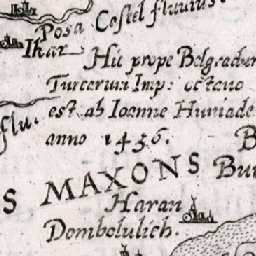 Posa
Castel fluvius
Ihar
Hic prope Belgradum
Turcarum Imp: octavo
est ab Ioanne Huniade
flu.
anno 1456.
B
S MAXONS
Bu
Haran
Dombolulich.